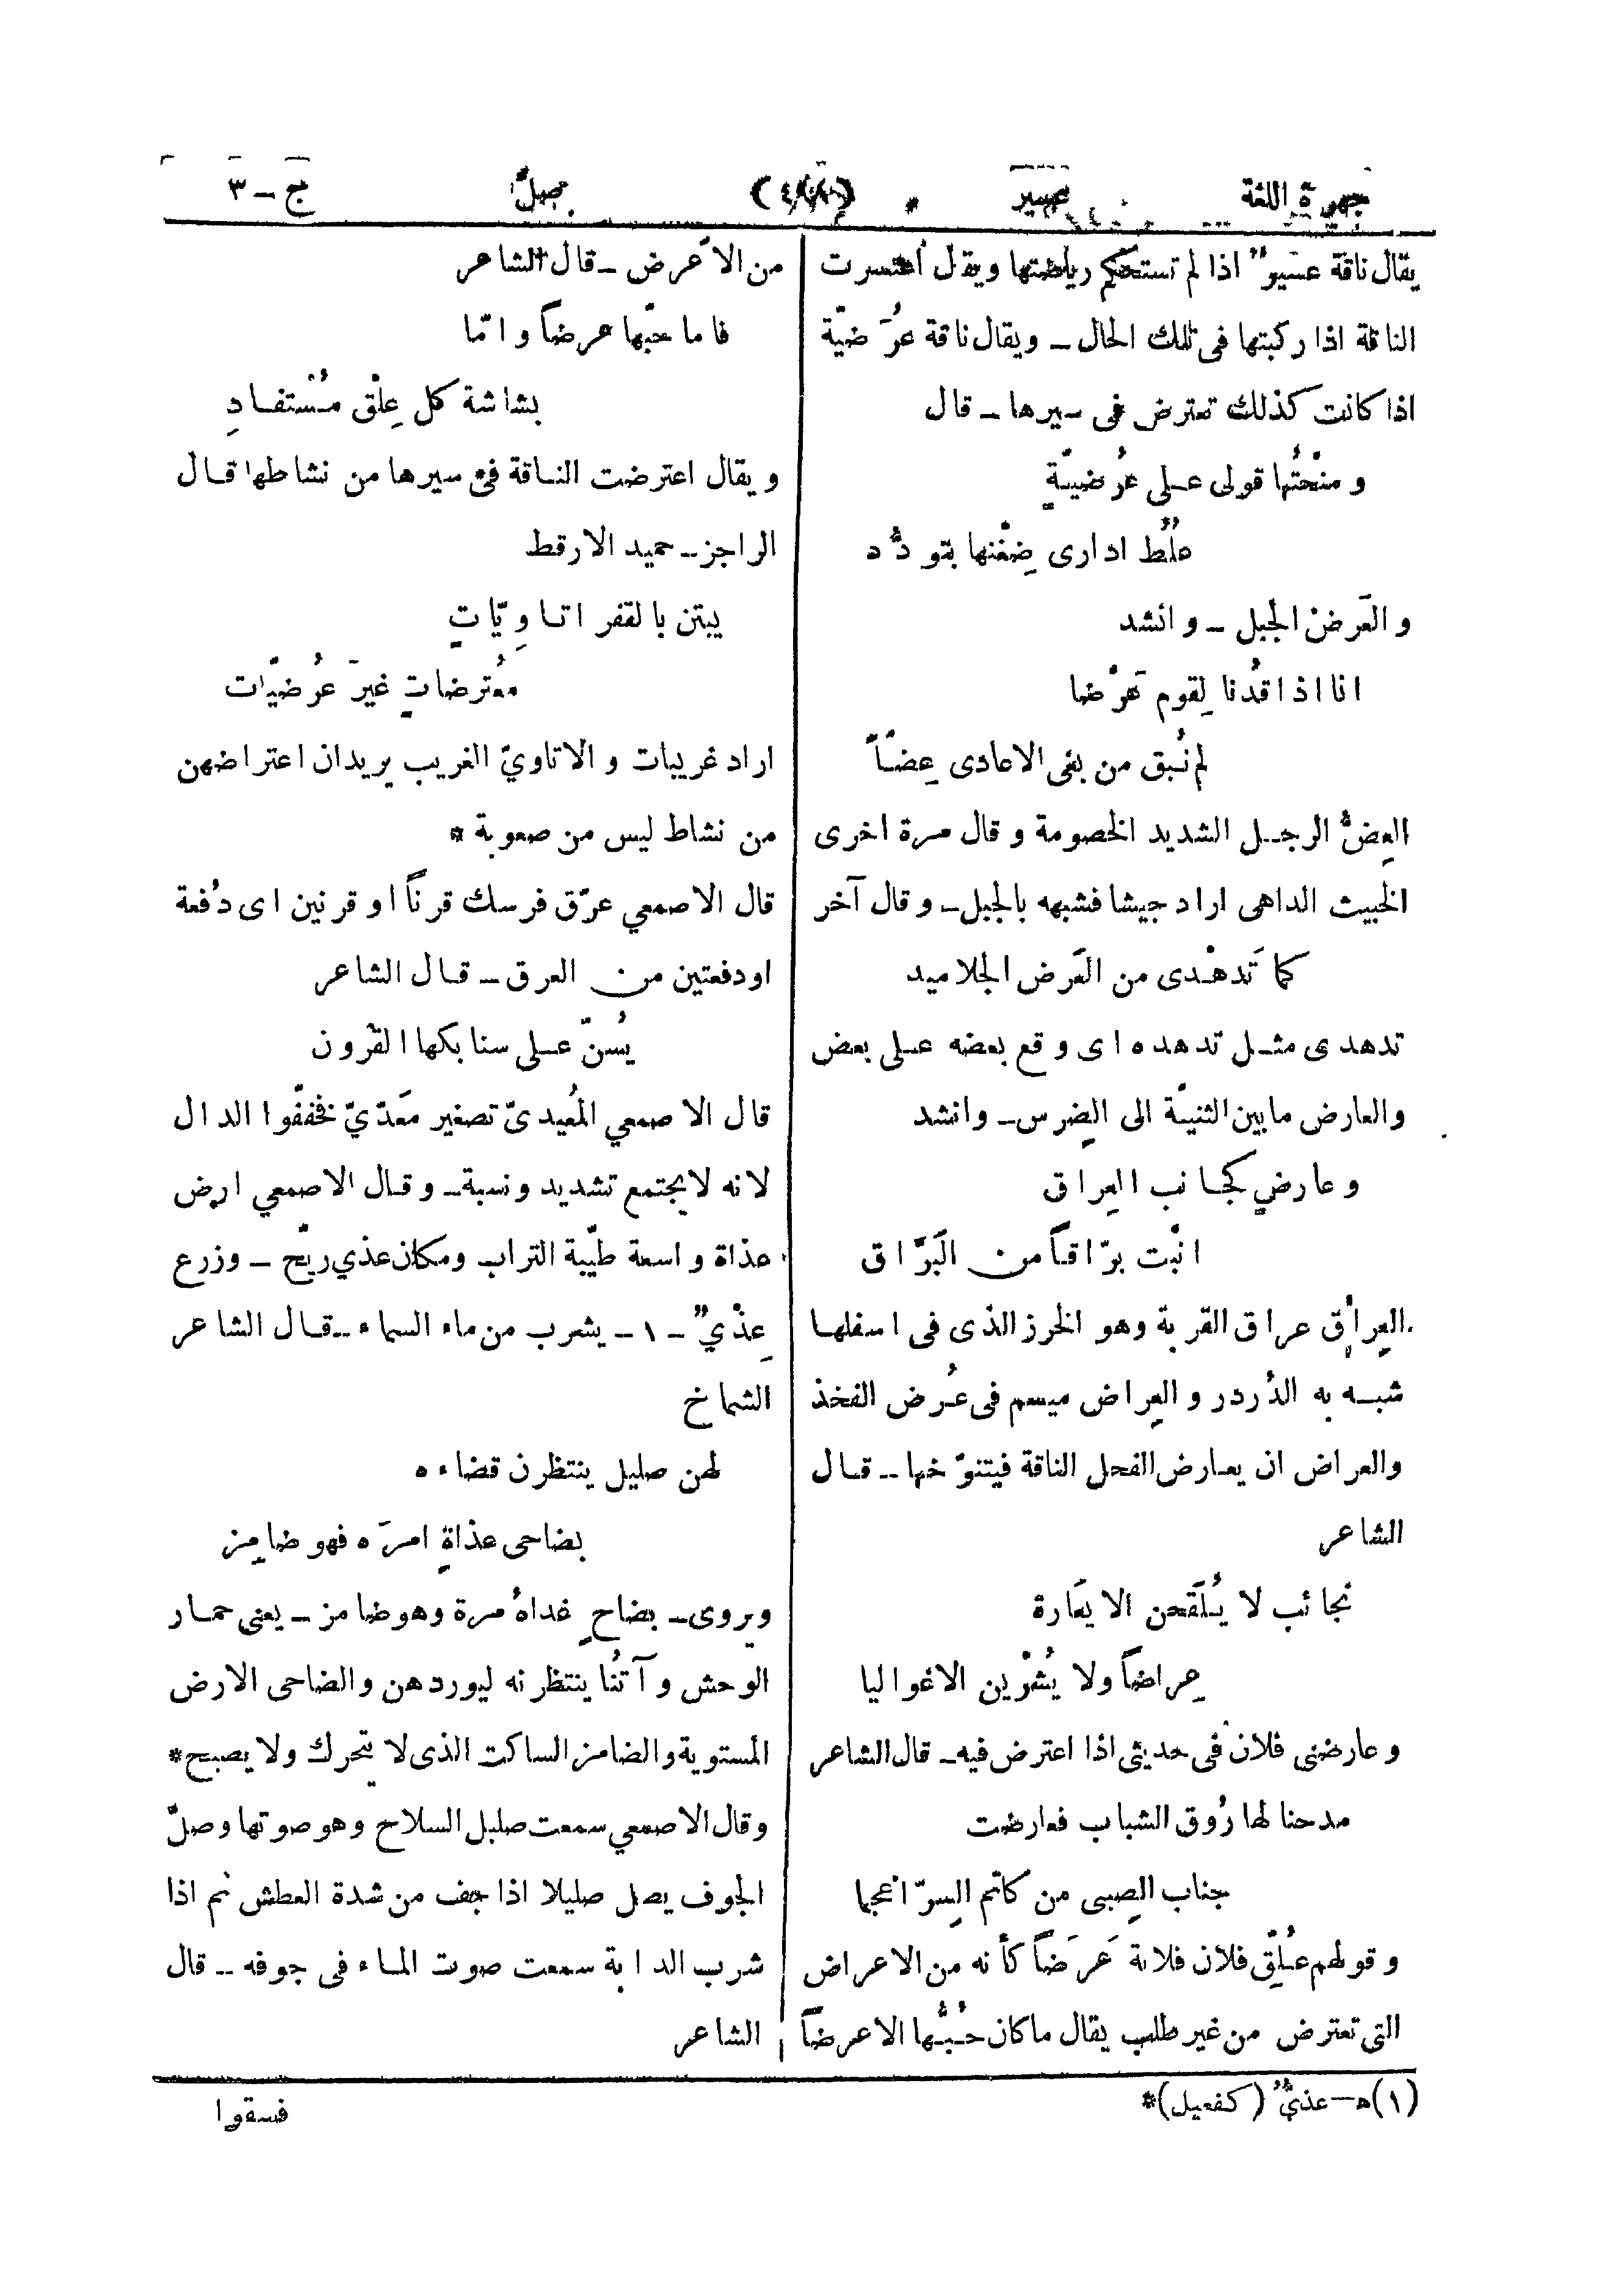 جمهرة اللغة
عسير
صلّ
ج – ٣
يقال ناقة عسير اذا لم تستحكم رياضتها ويقال اعتسرت
الناقة اذا ركبتها فى تلك الحال – ويقال ناقة عُرْضيّة
اذا كانت كذلك تعترض فى سيرها – قال
ومنحْتُها قولى على عُرْضيّةٍ
عُلُطٌ ادارى ضِغْنها بتودُّد
والعَرض الجبل – وانشد
انا اذا قُدنا لِقوم عَرْضا
لم نُبق من بغى الاعادى عِضّاً
العِضُّ الرجل الشديد الخصومة وقال مرة اخرى
الخبيث الداهى اراد جيشا فشبهه بالجبل – وقال آخر
كما تَدهْدى من العَرض الجلاميد
تدهدى مثل تدهده اى وقع بعضه على بعض
والعارض مابين الثنيّة الى الضِرس – وانشد
وعارضٍ كجانب العِراق
انْبت برّاقاً من البَرّاق
العِراق عراق القربة وهو الخرز الذى فى اسفلها
شبه به الدُردر والعِراض ميسم فى عُرض الفخذ
والعراض ان يعارض الفحل الناقة فيتنوّخها – قال
الشاعر
نجائب لا يُلَقحن الا يَعارة
عِراضاً ولا يُشْرَين الا غواليا
وعارضنى فلان فى حديثى اذا اعترض فيه – قال الشاعر
مدحنا لها رُوق الشباب فعارضت
جناب الصِبى من كاتم السِرّ اعجما
وقولهم عُلِّق فلان فلانة عَرَضاً كأنه من الاعراض
التى تعترض من غير طلب يقال ماكان حُبُّها الا عرضاً
من الاَعرض – قال الشاعر
فاما حبّها عرضاً وامّا
بشاشة كل عِلْق مُسْتفادِ
ويقال اعترضت الناقة فى سيرها من نشاطها قال
الراجز – حميد الارقط
يبتن بالقفر اتاوِيّاتٍ
معُترضاتٍ غيرَ عُرْضيّات
اراد غريبات والاتاويّ الغريب يريدان اعتراضهن
من نشاط ليس من صعوبة *
قال الاصمعي عرّق فرسك قرناً او قرنين اى دُفعة
اودفعتين من العرق – قال الشاعر
يُسنّ على سنابكها القُرون
قال الاصمعي المُعيدىّ تصغير مَعَدّيّ فخففّوا الدال
لانه لا يجتمع تشديد ونسبة – وقال الاصمعي ارض
عذاة واسعة طيّبة التراب ومكان عذي ريّح – وزرع
عِذْيٌ – ١ – يشرب من ماء السماء – قال الشاعر
الشماخ
لهن صليل ينتظرن قضاءه
بضاحى عذاةٍ امرَه فهو ضامِز
ويروى – بضاحٍ غداةُ مرة وهو ضامز – يعنى حمار
الوحش وآتُنا ينتظرنه ليوردهن والضاحى الارض
المستوية والضامز الساكت الذى لا يتحرك ولا يصبح *
وقال الاصمعي سمعت صليل السلاح وهو صوتها وصلّ
الجوف يصل صليلا اذا جف من شدة العطش ثم اذا
شرب الدابة سمعت صوت الماء فى جوفه – قال
الشاعر
(١) ه – عذيٌّ (كفعيل) *
فسقوا